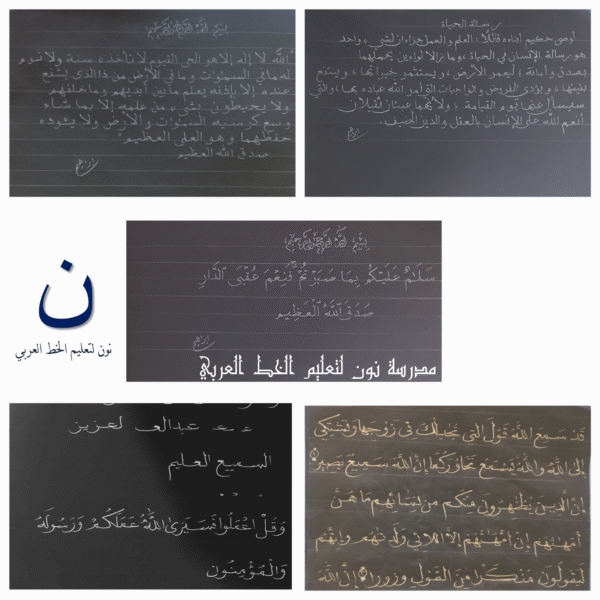 بسم الله الرحمن الرحيم
"الله لا إله إلا هو الحي القيوم لا تأخذه سنة ولا نوم
له ما في السموات وما في الأرض من ذا الذي يشفع
عنده إلا بإذنه يعلم ما بين أيديهم وما خلفهم
ولا يحيطون بشيء من علمه إلا بما شاء
وسع كرسيه السموات والأرض ولا يئوده
حفظهما وهو العلي العظيم"
صدق الله العظيم
رسالة الحياة
أوصى حكيم أبناءه قائلًا، العلم والعمل جزءان لشيء واحد
هو رسالة الإنسان في الحياة، وما زالا لواءين يحملهما
بصدق وأمانة، ليعمر الأرض، ويستثمر خيراتها، وينتفع
بفيئها، ويؤدي الفروض والواجبات التي أمر الله عباده بها، والتي
سيسأل عنها يوم القيامة، ولأنهما عبئان ثقيلان
أنعم الله على الإنسان بالعقل والدين الحنيف.
بسم الله الرحمن الرحيم
سَلَٰمٌ عَلَيْكُم بِمَا صَبَرْتُمْ فَنِعْمَ عُقْبَى ٱلدَّارِ
صَدَقَ ٱللَّهُ ٱلْعَظِيم
مدرسة نون لتعليم الخط العربي
ن
نون لتعليم الخط العربي
لعزيز
السميع العليم
وَقُلْ اعْمَلُوا فَسَيَرَى اللَّهُ عَمَلَكُمْ وَرَسُولُهُ
وَالْمُؤْمِنُون
قَدْ سَمِعَ اللهُ قَوْلَ الَّتِي تُجَادِلُكَ فِي زَوْجِهَا وَتَشْتَكِي
إِلَى اللهِ وَاللهُ يَسْمَعُ تَحَاوُرَكُمَا إِنَّ اللهَ سَمِيعٌ بَصِيرٌ
الَّذِينَ يُظَهِرُونَ مِنكُم مِن نِسَائِهِم مَا هُنَّ
أُمَّهَتِهِم إِن أُمَّهَتُهُم إِلَّا الَّائِي وَلَدْنَهُم وَإِنَّهُم
لَيَقُولُونَ مُنكَرًا مِنَ القَوْلِ وَزُورًا إِنَّ اللهَ